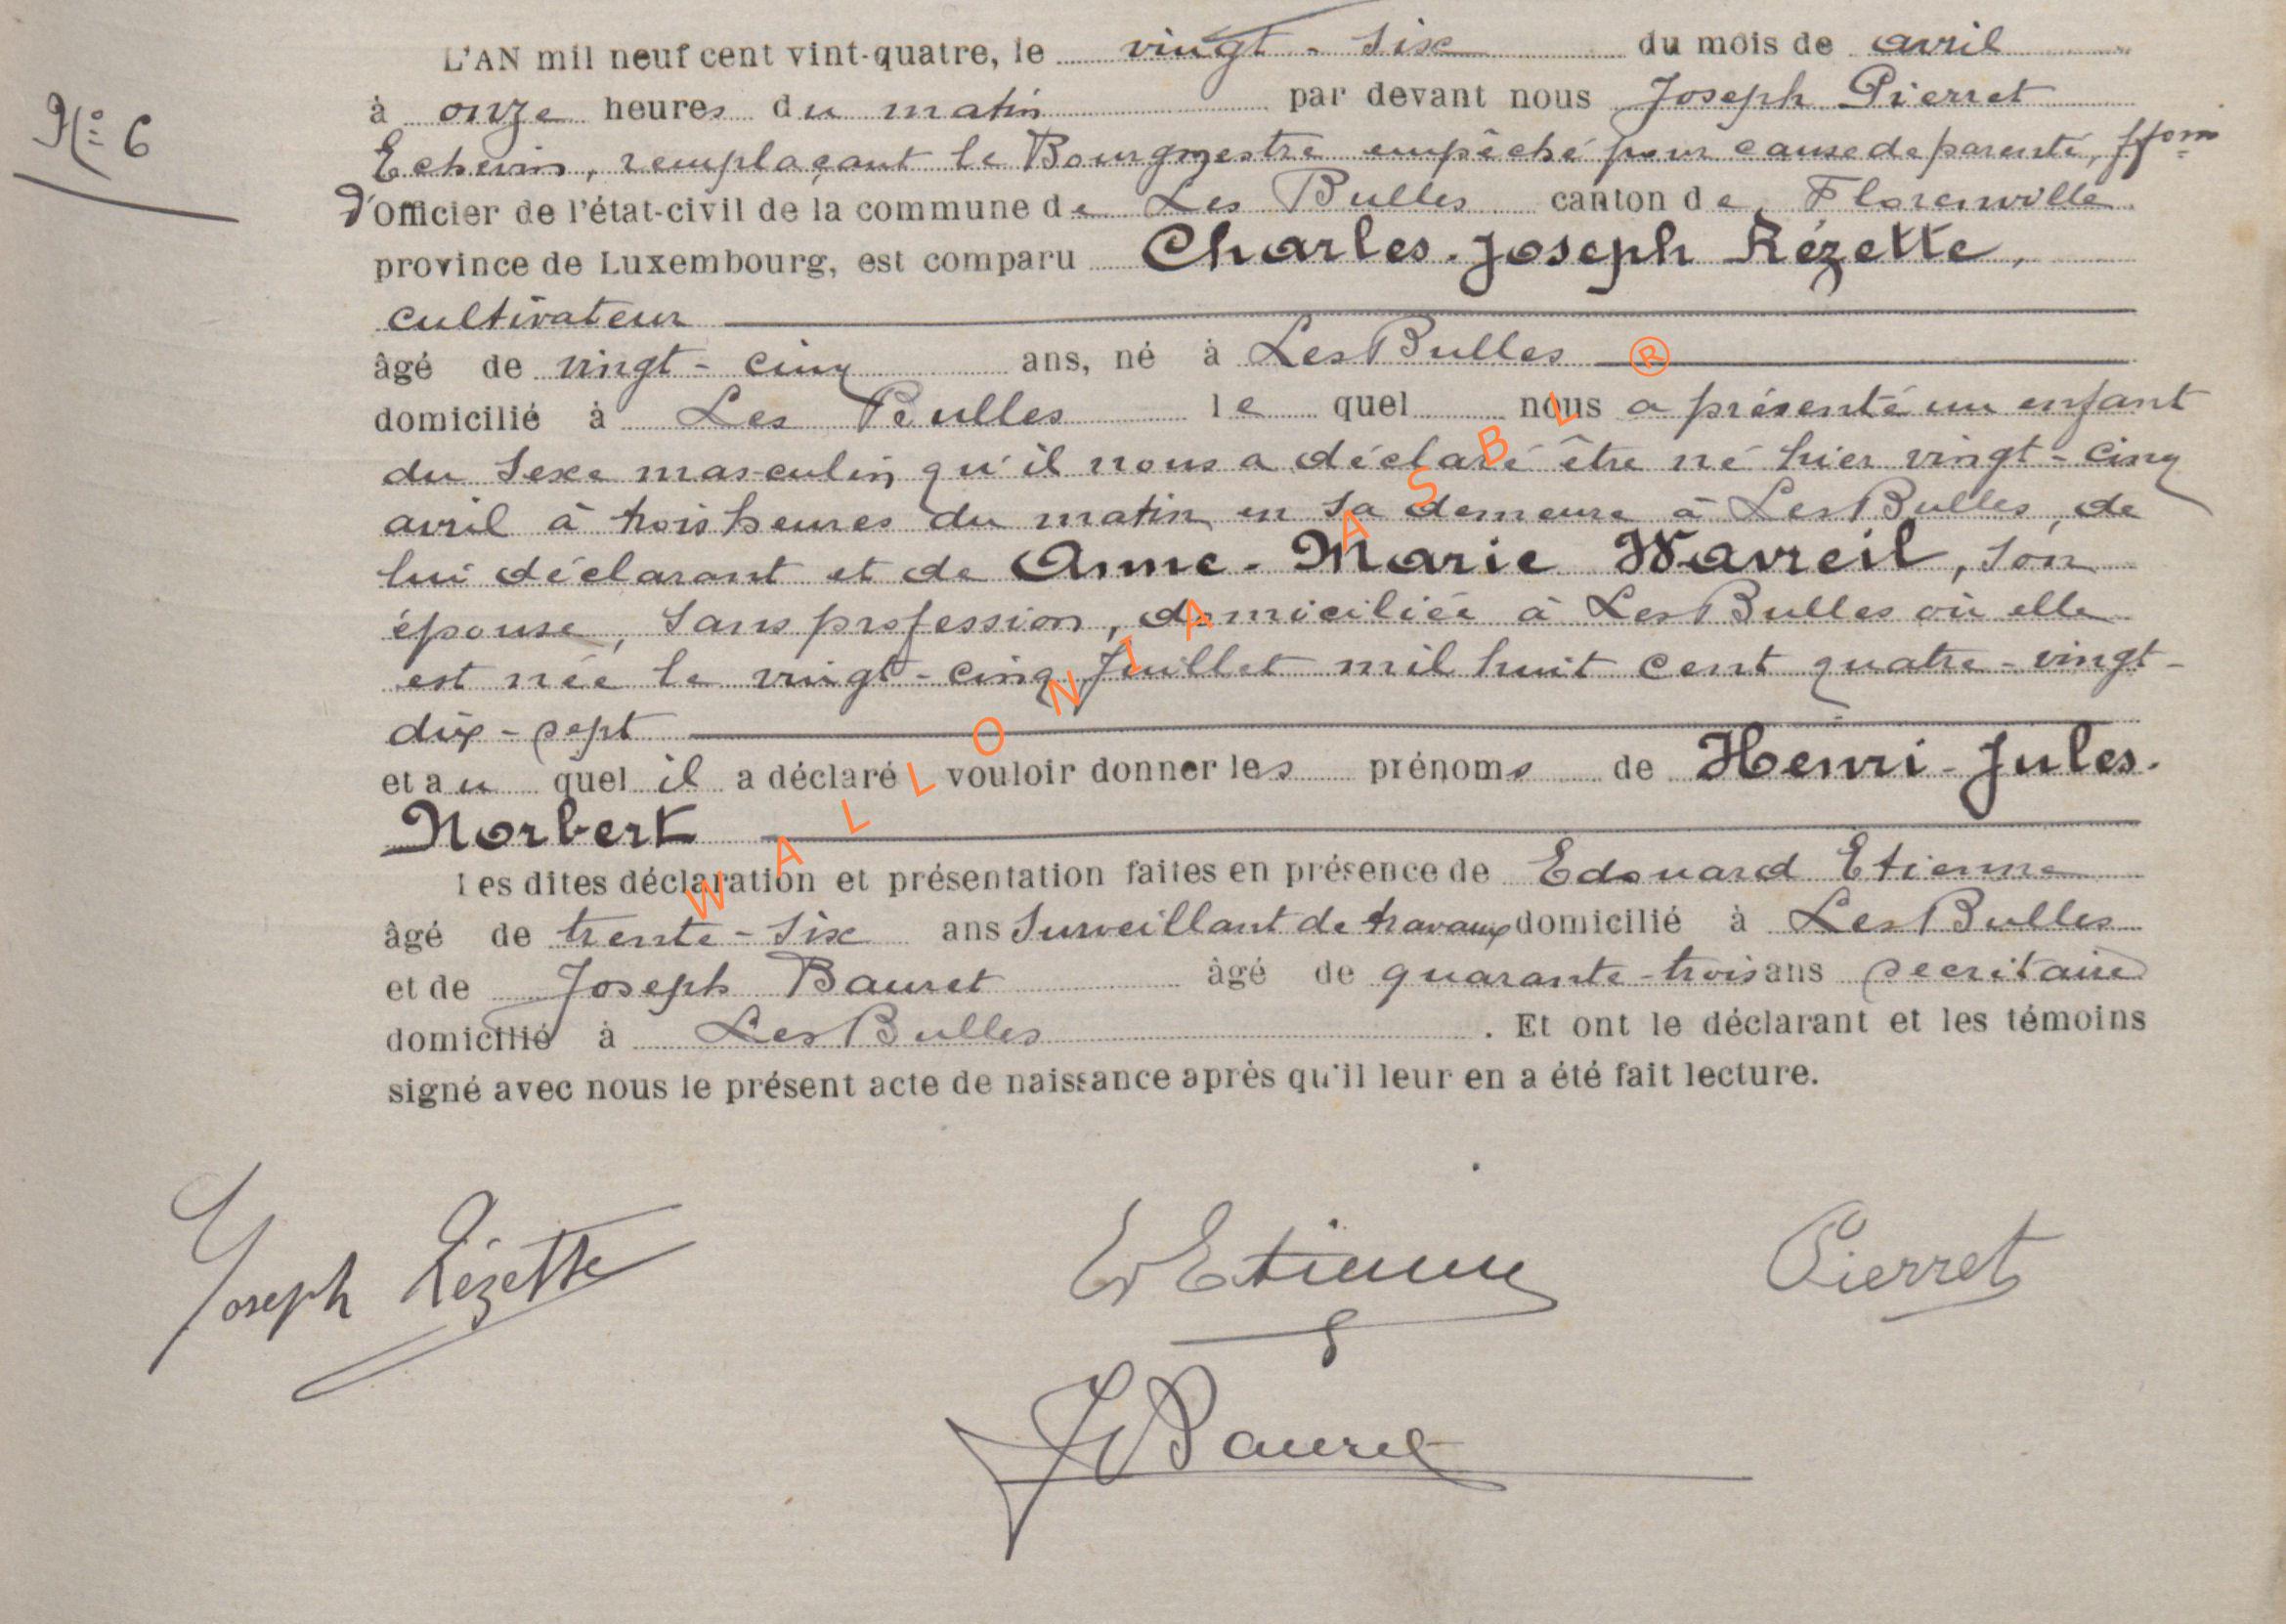 L'AN mil neuf cent vint-quatre, le vingt-six du mois de avril
à onze heures du matin par devant nous Joseph Pierret
N° 6
Echevin, remplaçant le Bourgmestre empêché pour cause de parenté, ffons
d'Officier de l'état-civil de la commune de Les Bulles canton de Florenville
province de Luxembourg, est comparu Charles-Joseph Rézette,
cultivateur
âgé de vingt-cinq ans, né à Les Bulles
domicilié à Les Bulles le quel nous a présenté un enfant
du sexe masculin qu'il nous a déclaré être né hier vingt-cinq
avril à trois heures du matin en sa demeure à Les Bulles, de
lui déclarant et de Anne-Marie Wavreil, son
épouse, sans profession, domiciliée à Les Bulles où elle
est née le vingt-cinq Juillet mil huit cent quatre-vingt-
dix-sept
et au quel il a déclaré vouloir donner les prénoms de Henri-Jules-
Norbert
Les dites déclaration et présentation faites en présence de Edouard Etienne
âgé de trente-six ans surveillant de travaux domicilié à Les Bulles
et de Joseph Bauret âgé de quarante-trois ans secrétaire
domicilié à Les Bulles. Et ont le déclarant et les témoins
signé avec nous le présent acte de naissance après qu'il leur en a été fait lecture.
Joseph Rézette E Etienne Pierret
J Bauret
WALLONIA ASBL ®